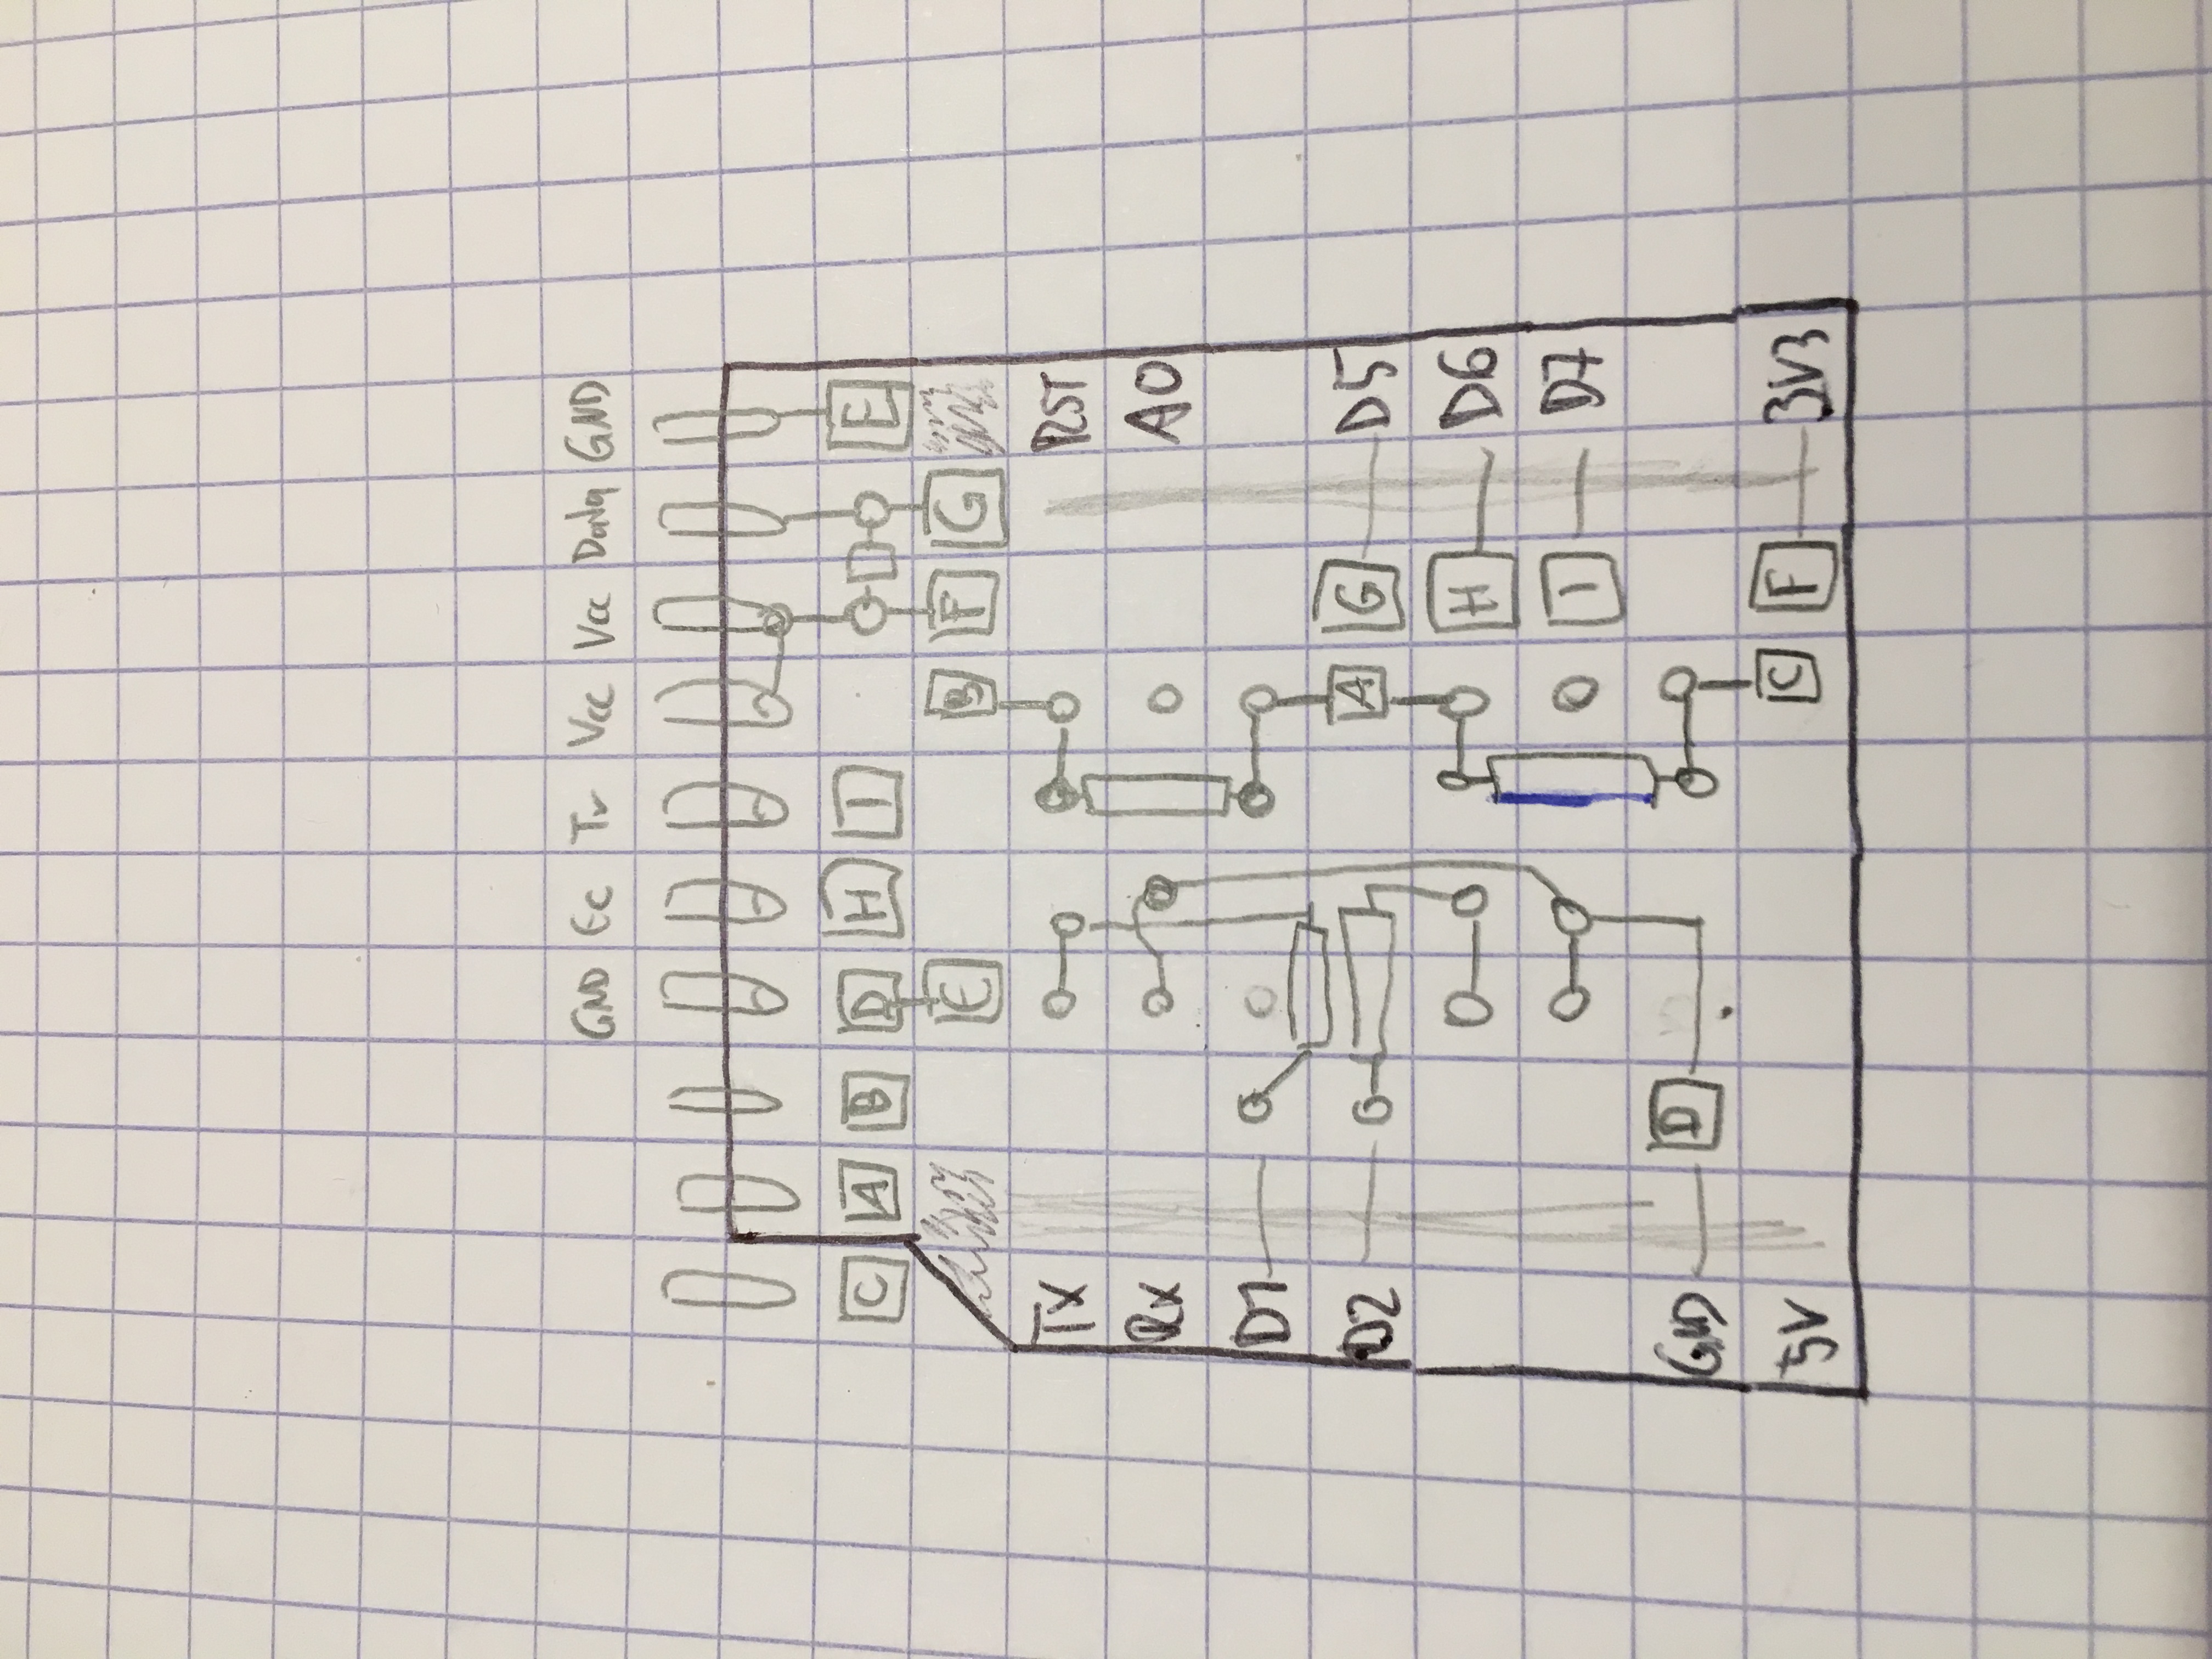 GND Ec Tr Vcc Vcc Data GND
C A B D H I E
E B F G
TX RST
Rx A0
D1
D2 A G D5
H D6
I D7
GND D
5V C F 3V3